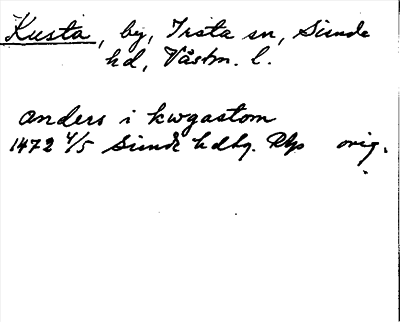 Kusta, by, Irsta sn, Siende
hd, Västm. l.
anders i kwgastom
1472 4/5 Siende hdbg. Rep orig.